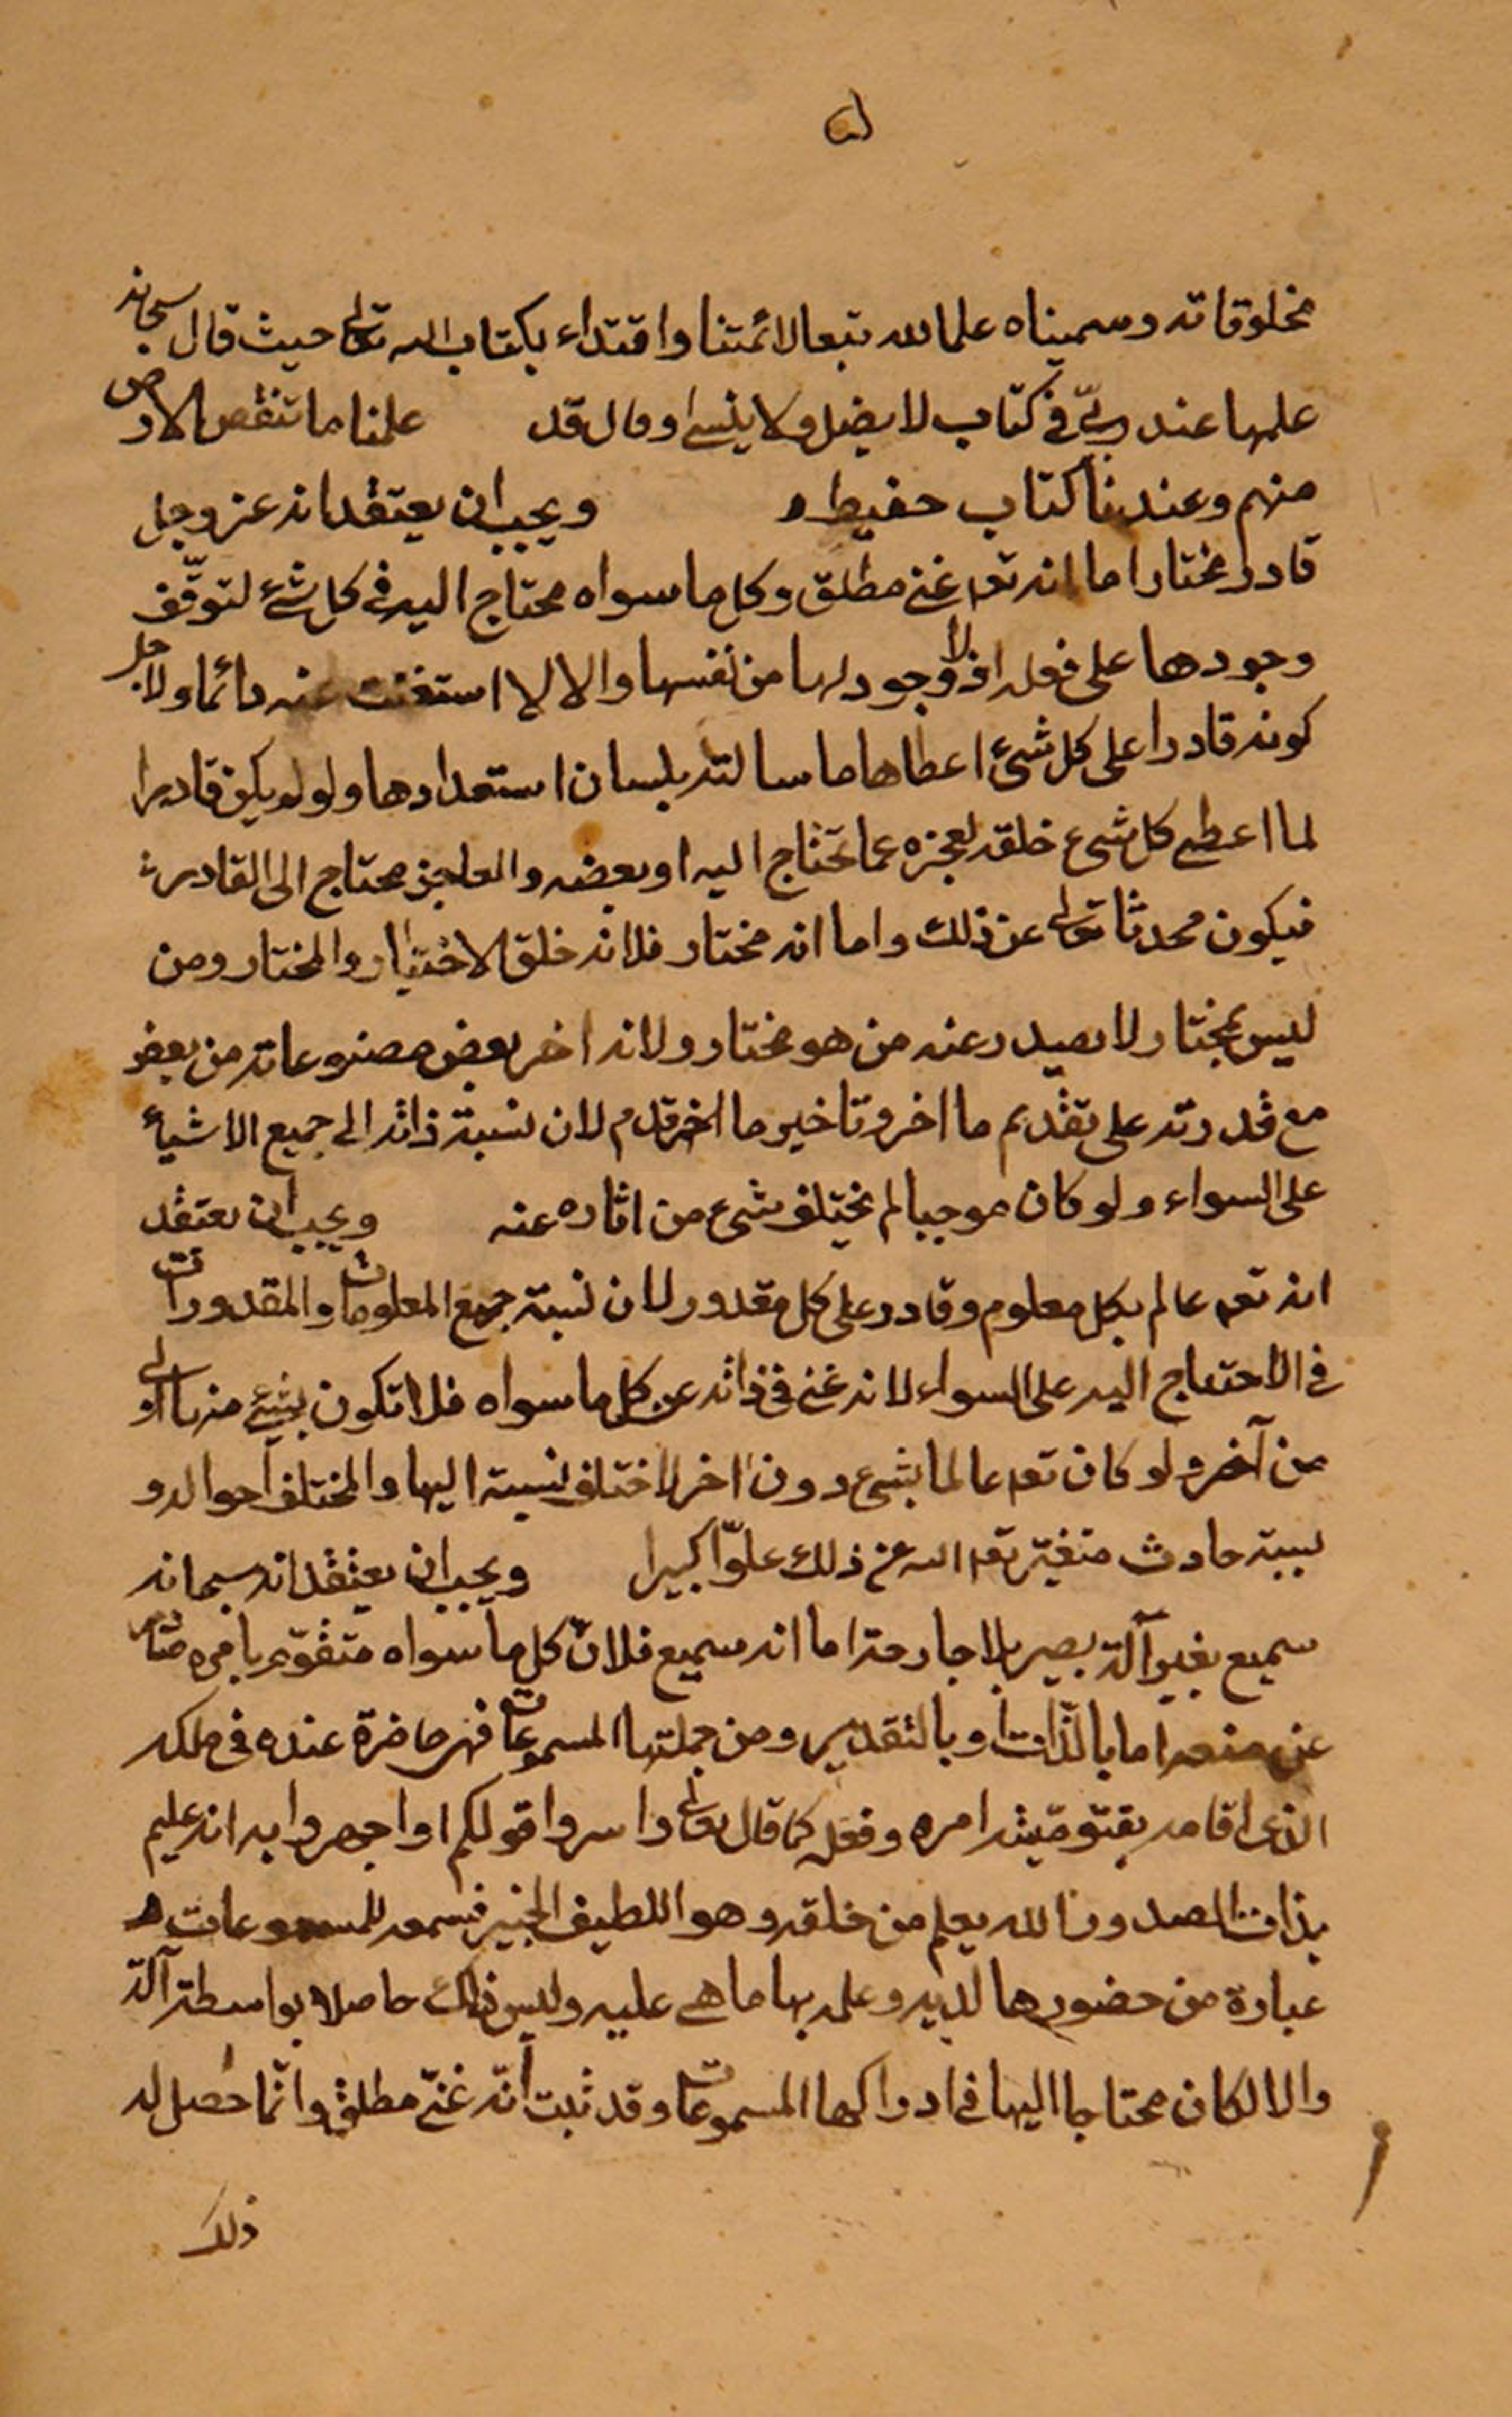 مخلوقاته وسميناه علما لله تبعا لائمتنا واقتداء بكتاب الله تعالى حيث قال سبحانه
علمها عند ربّي في كتاب لا يضل ولا ينسى وقال قد علمنا ما تنقص الارض
منهم وعندنا كتاب حفيظ ويجب ان يعتقد انه عز وجل
قادر مختار اما انه تعه غني مطلق وكل ما سواه محتاج اليه في كل شئ لتوقّف
وجودها على فعله اذ لا وجود لها من نفسها والا لا استغنت عنه دائما ولاجل
كونه قادرا على كل شئ اعطاها ما سالته بلسان استعدادها ولو لم يكن قادرا
لما اعطى كل شئ خلقه لعجزه عما تحتاج اليه او بعضه والعاجز محتاج الى القادر
فيكون محدثا تعالى عن ذلك واما انه مختار فلانه خلق الاختيار والمختار ومن
ليس بمختار لا يصدر عنه من هو مختار ولانه اخر بعض مصنوعاته من بعض
مع قدرته على تقديم ما اخر وتاخير ما قدم لان نسبة ذاته الى جميع الاشياء
على السواء ولو كان موجبا لم يختلف شئ من اثاره عنه ويجب ان يعتقد
انه تعه عالم بكل معلوم وقادر على كل مقدور لان نسبة جميع المعلومات والمقدورات
في الاحتياج اليه على السواء لانه غني في ذاته عن كل ما سواه فلا تكون بشئ منها اولى
من آخر ولو كان تعه عالما بشئ دون اخر لاختلف نسبته اليها والمختلف احواله و
نسبته حادث متغيّر تعه الله عن ذلك علوّا كبيرا ويجب ان يعتقد انه سبحانه
سميع بغير آلة بصير بلا جارحة اما انه سميع فلانّ كل ما سواه متقوّم بامره
عن صنعه اما بالذّات او بالتقدير ومن جملتها المسموعات فهي حاضرة عنده في ملكه
الذى اقامه بقيّوميّته امره وفعله كما قال تعالى واسروا قولكم او اجهروا به انه عليم
بذات الصدور الا يعلم من خلقه وهو اللطيف الخبير فسمعه للمسموعات
عبارة من حضورها لديه وعلمه بها ما هى عليه وليس ذلك حاصلا بواسطة آلة
والا لكان محتاجا اليها في ادراكها المسموعات وقد ثبت أنّه غنىّ مطلق وانّما حصل له
ذلك